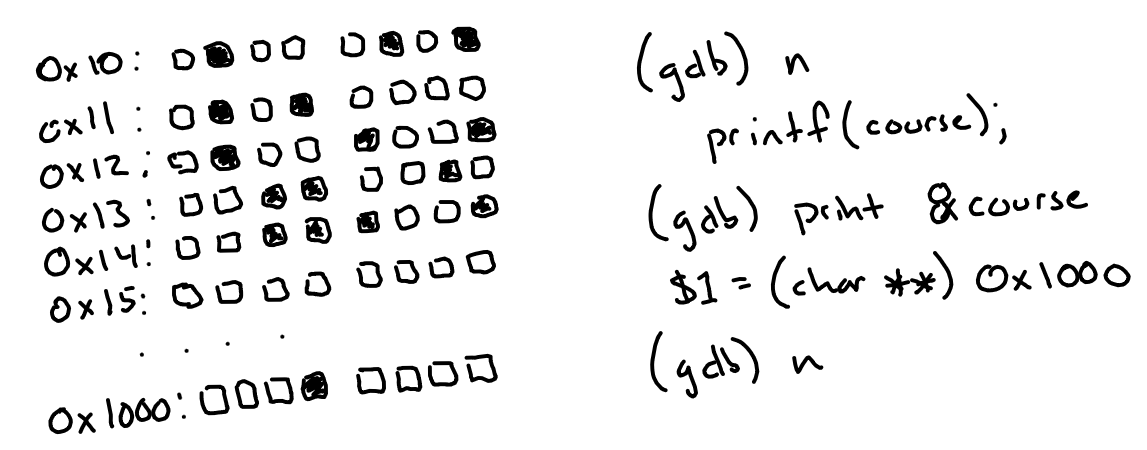 0x10:
0x11:
0x12:
0x13:
0x14:
0x15:
. . . .
0x1000:
(gdb) n
printf(course);
(gdb) print &course
$1 = (char **) 0x1000
(gdb) n